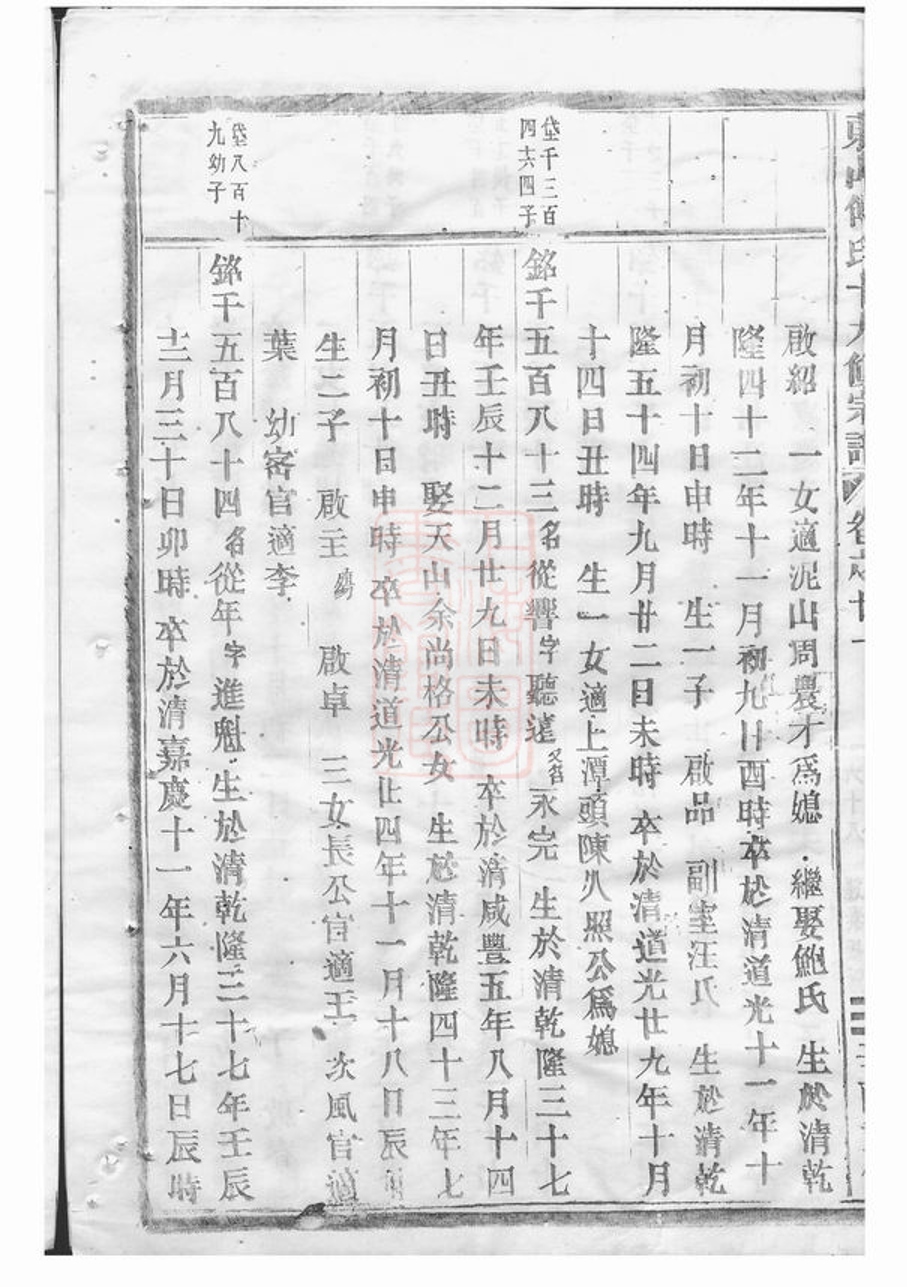 啟紹　一女適泥山周農才爲媳　繼娶鮑氏　生於清乾
隆四十二年十一月初九日酉時卒於清道光十一年十
月初十日申時　生一子　啟品　副室汪氏　生於清乾
隆五十四年九月廿二日未時　卒於清道光廿九年十月
十四日丑時　生一女適上潭頭陳 照公爲媳
岱千三百
四六四子
銘千五百八十三名從響字聽遠又名永完　生於清乾隆三十七
年壬辰十二月廿九日未時　卒於清咸豐五年八月十四
日丑時　娶天山余尚格公女　生於清乾隆四十三年七
月初十日申時　卒於清道光廿四年十一月十八日辰
生二子　啟主　啟卓　三女長公官適王　次風官適
葉　幼密官適李
岱八百十
九幼子
銘千五百八十四名從年字進魁　生於清乾隆三十七年壬辰
十二月三十日卯時　卒於清嘉慶十一年六月十七日辰時